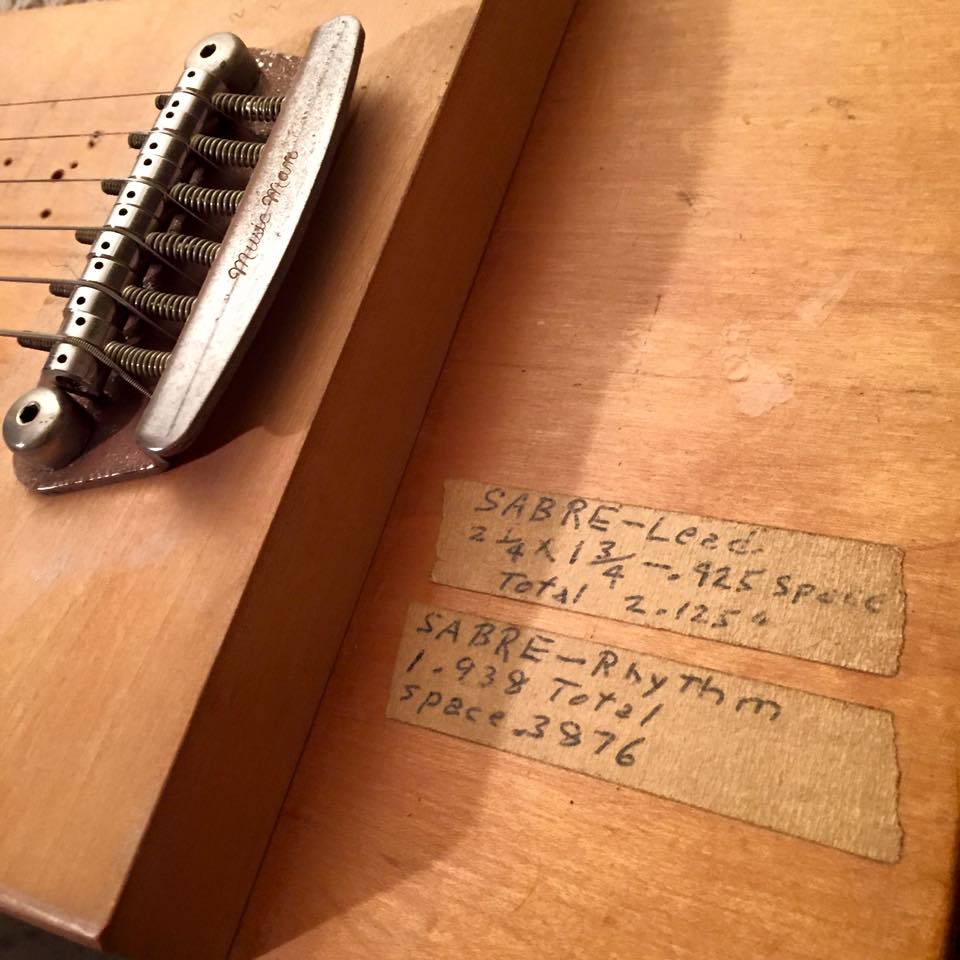 Music Man
SABRE-Lead.
2 1/4 x 1 3/4 -.425 space
Total 2.125"
SABRE-Rhythm
1.938 Total
space .3876